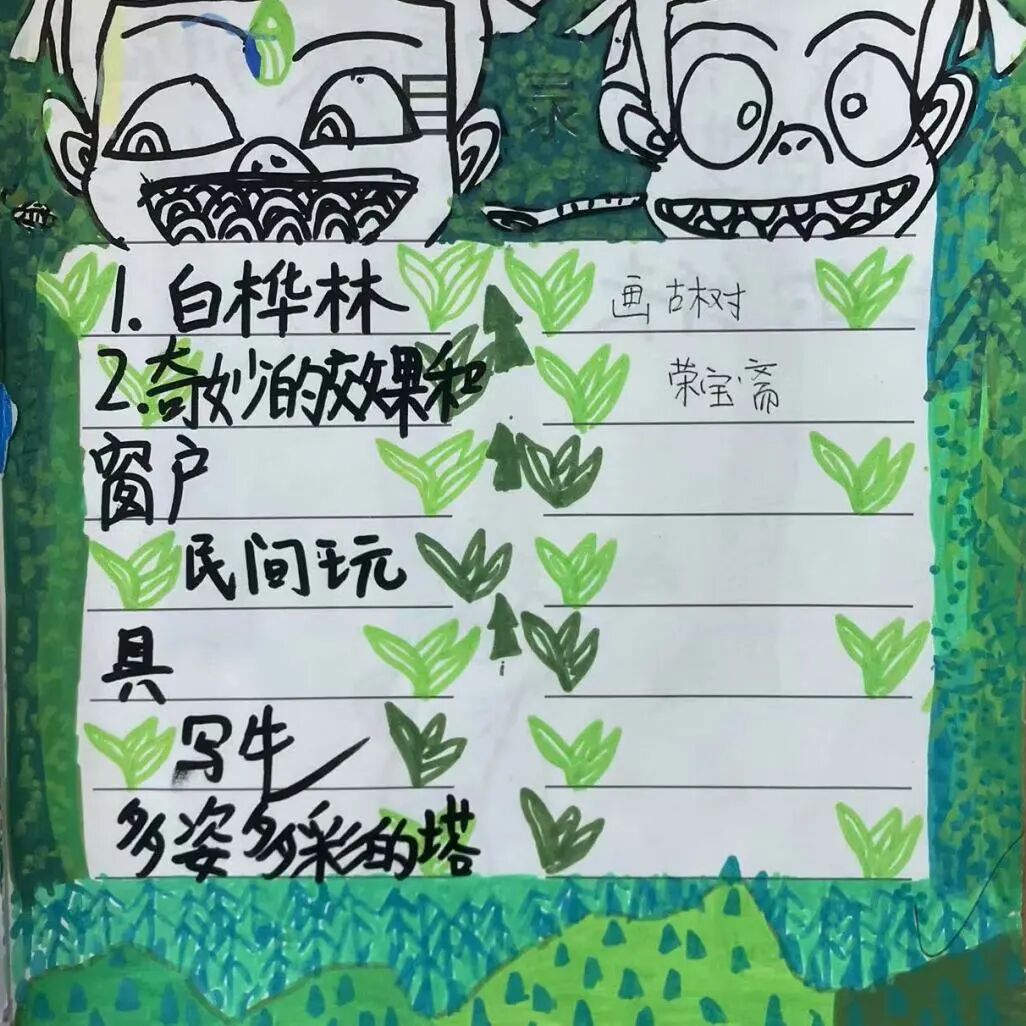 目录
1. 白桦林
2. 奇妙的效果和
窗户
民间玩
具
写牛
多姿多彩的塔
画古树
荣宝斋